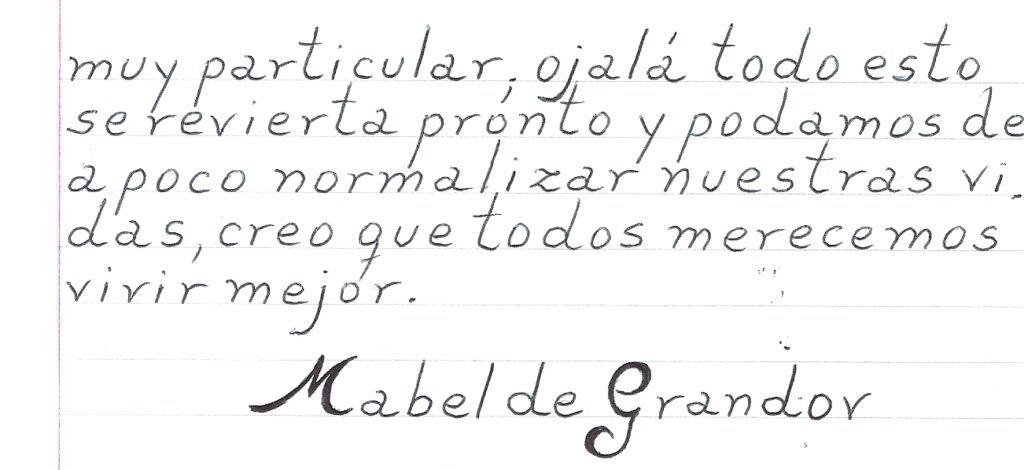 muy particular, ojalá todo esto
se revierta pronto y podamos de
a poco normalizar nuestras vi-
das, creo que todos merecemos
vivir mejor.
Mabel de Grandov